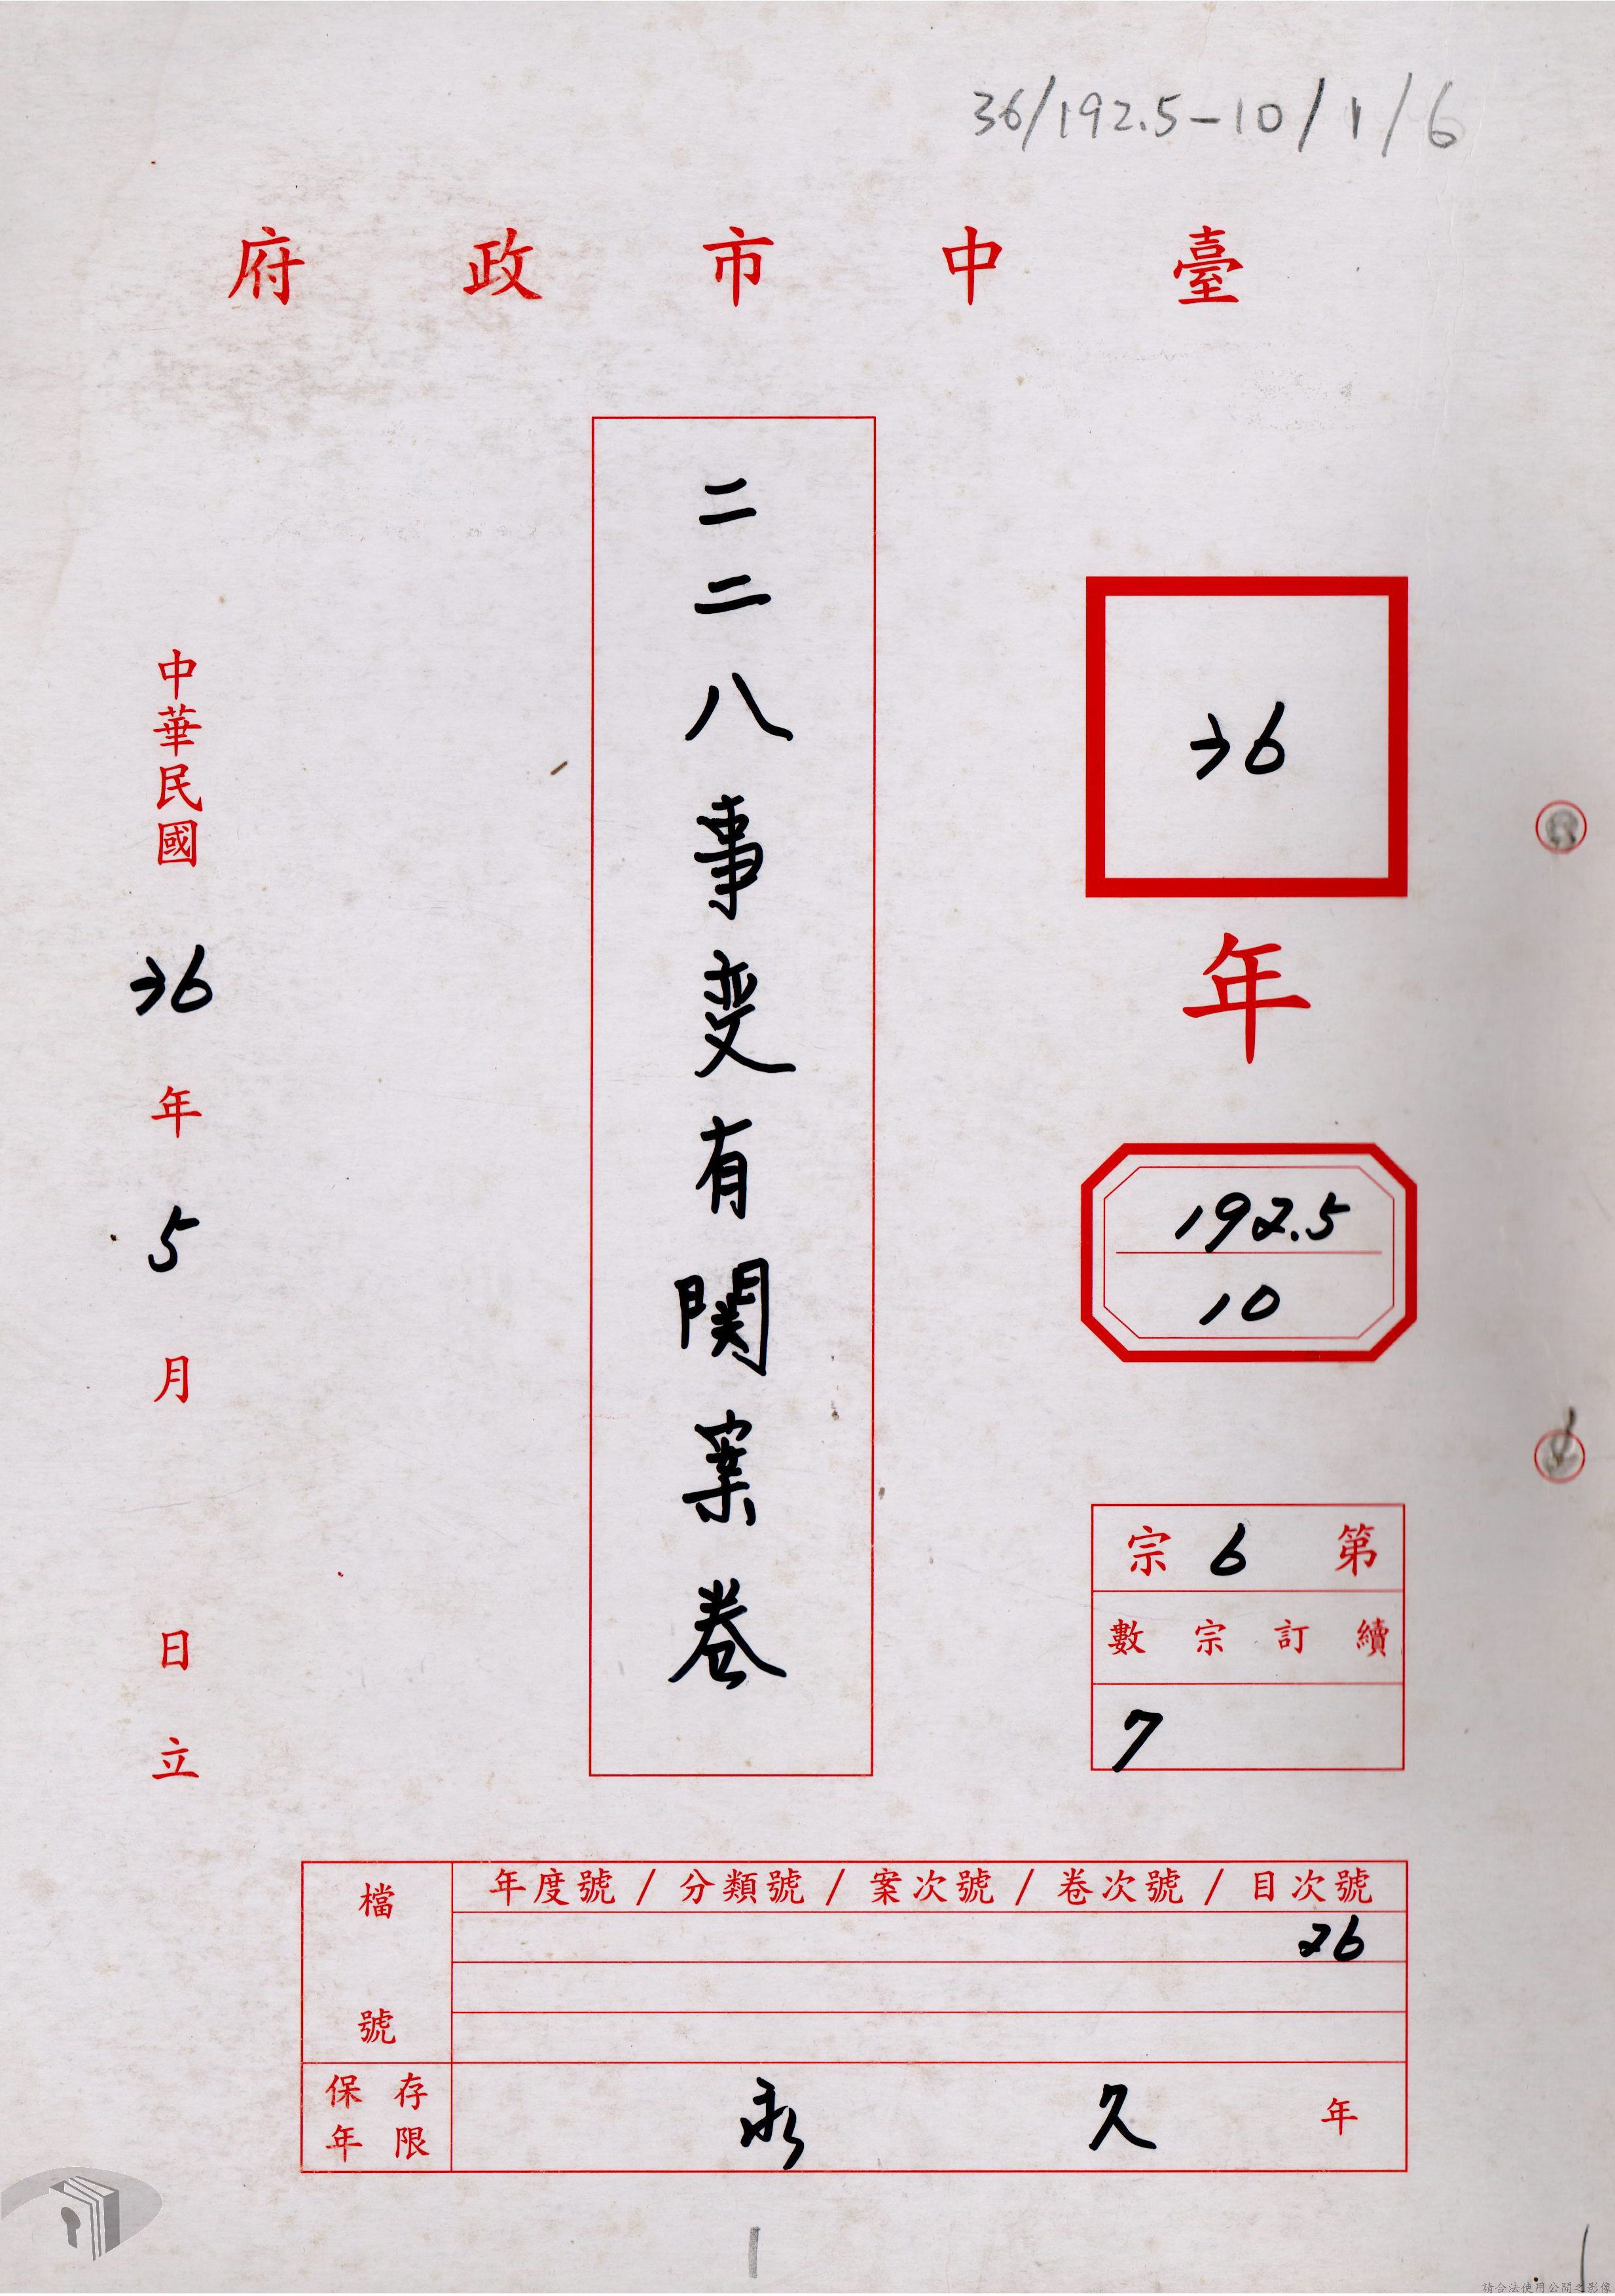 36/192.5-10/1/6
臺中市政府
36
年
192.5
10
第6宗
續訂宗數
7
二二八事变有関案卷
中華民國36年5月日立
檔號
年度號/分類號/案次號/卷次號/目次號
26
保存年限
永久年
請合法使用公開之影像